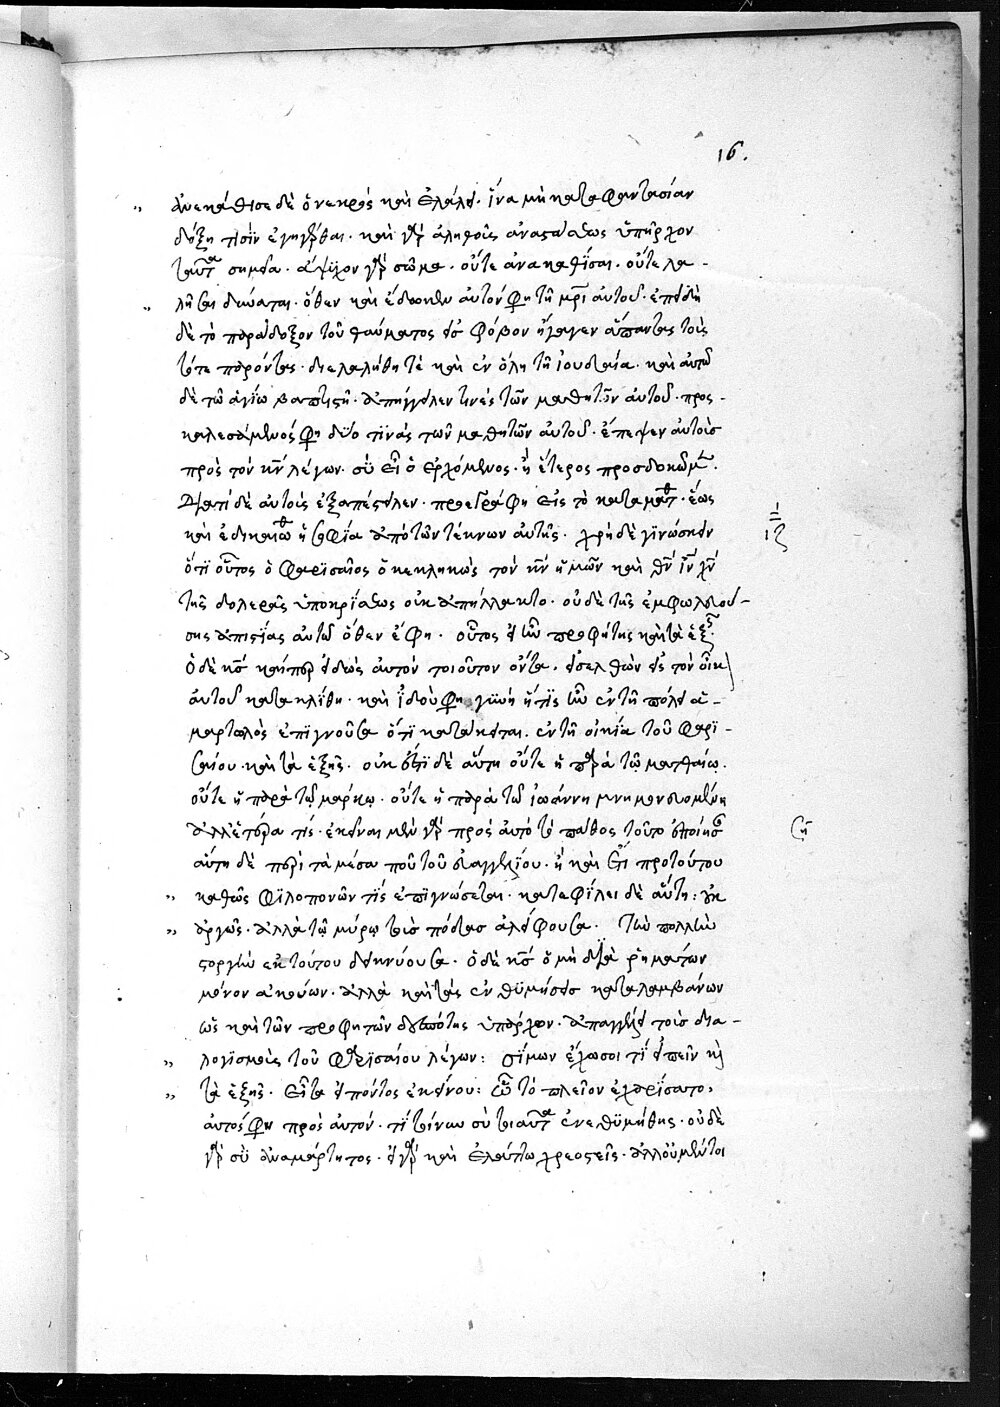 16.
ἀνεκάθισε δὲ ὁ νεκρός καὶ ἐλάλει. ἵνα μὴ κατὰ φαντασίαν
δόξη τισὶν ἐγηγέρθαι. καὶ γὰρ ἀληθοῦς ἀναστάσεως ὑπῆρχον
ταῦτα σημεῖα. ἄψυχον γὰρ σῶμα. οὔτε ἀνακαθῖσαι. οὔτε λα-
λῆσαι δύναται. ὅθεν καὶ ἔδωκεν αὐτόν φη τῆ μρὶ αὐτοῦ. ἐπειδὴ
δὲ τὸ παράδοξον τοῦ θαύματος εἰς φόβον ἤγαγεν ἅπαντας τοὺς
τότε παρόντας. διελαλήθη τὲ καὶ ἐν ὅλη τῆ ἰουδαία. καὶ αὐτῶ
δὲ τῶ ἁγίω βαπτιστῆ. ἀπήγγειλεν τινὲς τῶν μαθητῶν αὐτοῦ. προς-
καλεσάμενός φη δύο τινὰς τῶν μαθητῶν αὐτοῦ. ἔπεμψεν αὐτοὺς
πρὸς τὸν κν λέγων. σὺ εἶ ὁ ἐρχόμενος. ἢ ἕτερος προσδοκῶμ.
διατί δὲ αὐτοὺς ἐξαπέστειλεν. προεγράφη εἰς τὸ κατὰ ματθ. ἕως
καὶ ἐδικαιώθ ἡ σοφία ἀπὸ τῶν τέκνων αὐτῆς. χρὴ δὲ γινώσκειν
ιζ
ὅτι οὗτος ὁ φαρισαῖος ὁ κεκληκὼς τὸν κν ἡμῶν καὶ θν ιν χν
τῆς δολερᾶς ὑποκρίσεως οὐκ ἀπήλλακτο. οὐδὲ τῆς ἐμφωλευού-
σης ἀπιστίας αὐτῶ ὅθεν ἔφη. οὗτος εἰ ἦν προφήτης καὶ τὰ ἑξ.
ὁ δὲ κς καίπερ εἰδὼς αὐτὸν τοιοῦτον ὄντα. εἰσελθὼν εἰς τὸν οἶκ
αὐτοῦ κατακλίθη. καὶ ἰδού φη γυνὴ ἥτις ἦν ἐν τῆ πόλει ἁ-
μαρτωλὸς ἐπιγνοῦσα ὅτι κατάκειται. ἐν τῆ οἰκία τοῦ φαρι-
σαίου. καὶ τὰ ἑξῆς. οὐκ ἔστι δὲ αὕτη οὔτε ἡ παρὰ τῶ ματθαίω.
οὔτε ἡ παρὰ τῷ μαρκῳ. οὔτε ἡ παρὰ τῶ ἰωάννη μνημονευομένη
ἀλλ' ἑτέρα τίς. ἐκεῖναι μὲν γὰρ πρὸς αὐτὸ τὸ πάθος τοῦτο ἐποίησ
ση
αὕτη δὲ περὶ τὰ μέσα που τοῦ εὐαγγελίου. ἢ καὶ ἔτι πρὸ τούτου
καθὼς φιλοπονῶν τίς ἐπιγνώσεται. καταφίλει δὲ αὕτη: οὐκ
ἀργῶς. ἀλλὰ τῷ μύρῳ τοὺς πόδας ἀλείφουσα. τὴν πολλὴν
στοργὴν ἐκ τούτου δεικνύουσα. ὁ δὲ κς ὁ μὴ διὰ ῥημάτων
μόνον ἀκούων. ἀλλὰ καὶ τὰς ἐνθυμήσεις καταλαμβάνων
ὡς καὶ τῶν προφητῶν δεσπότης ὑπάρχων. ἀπαγγέλει τοὺς δια-
λογισμοὺς τοῦ φαρισαίου λέγων: σίμων ἔχω σοι τί εἰπεῖν κὶ
τὰ ἑξῆς. εἶτα εἰπόντος ἐκείνου: ὧ τὸ πλεῖον ἐχαρίσατο.
αὐτός φη πρὸς αὐτόν. τί τοίνυν σὺ τοιαῦτα ἐνεθυμήθης. οὐδὲ
γὰρ σὺ ἀναμάρτητος. εἰ γὰρ καὶ ἐλάττω χρεοστεῖς. ἀλλ' οὐ μέντοι